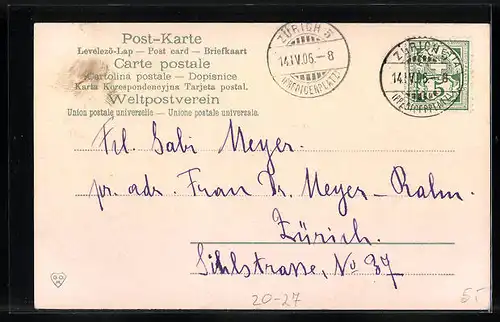 Post-Karte
Levelezö-Lap — Post card — Briefkaart
Carte postale
Cartolina postale — Dopisnice
Karta Korespondencyjna Tarjeta postal.
Weltpostverein
Union postale universelle — Unione postale universale.
ZÜRICH 5
14.IV.06.-8
ZÜRICH 5
14.IV.06.-8
5
Frl. Gabi Meyer.
pr. adr. Frau Dr. Meyer-Rahn.
Zürich.
Sihlstrasse, No 37
20-27